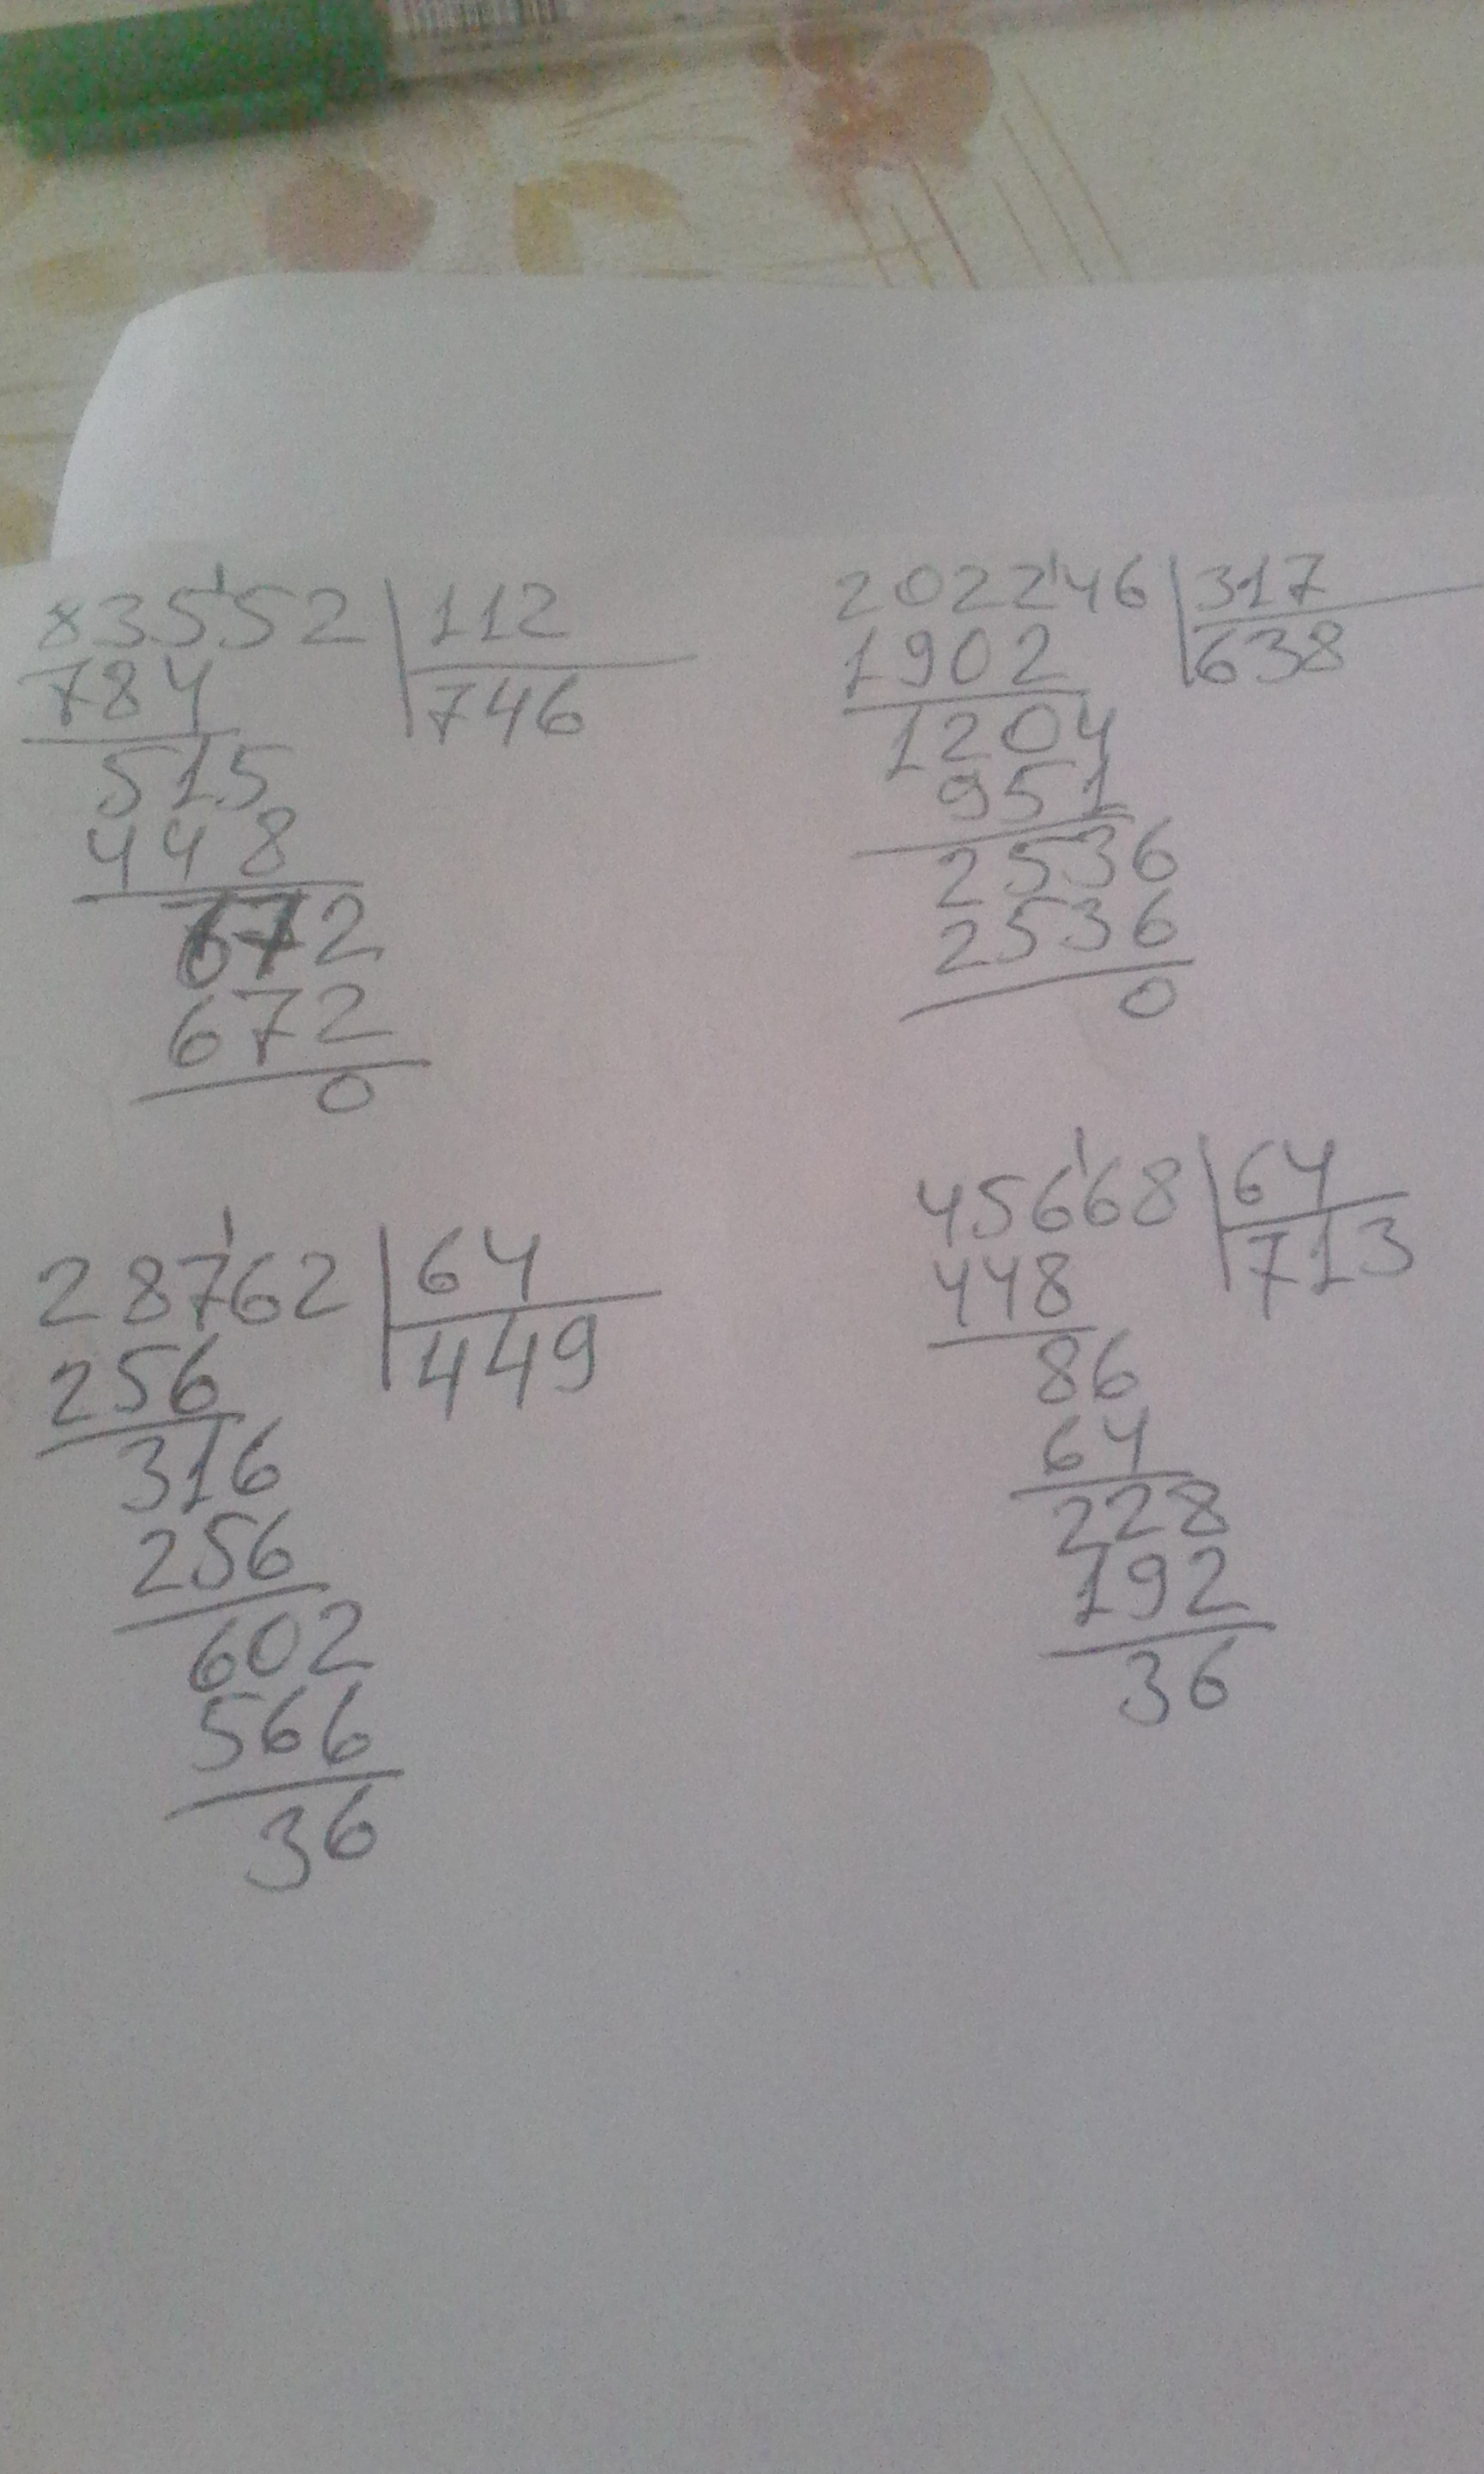 83552 112
784 746
515
448
672
672
0
202246 317
1902 638
1204
951
2536
2536
0
28762 64
256 449
316
256
602
566
36
45668 64
448 713
86
64
228
192
36